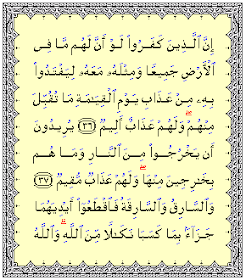 إِنَّ ٱلَّذِينَ كَفَرُوا۟ لَوْ أَنَّ لَهُم مَّا فِى
ٱلْأَرْضِ جَمِيعًا وَمِثْلَهُۥ مَعَهُۥ لِيَفْتَدُوا۟
بِهِۦ مِنْ عَذَابِ يَوْمِ ٱلْقِيَٰمَةِ مَا تُقُبِّلَ
مِنْهُمْ ۖ وَلَهُمْ عَذَابٌ أَلِيمٌ ﴿٣٦﴾ يُرِيدُونَ
أَن يَخْرُجُوا۟ مِنَ ٱلنَّارِ وَمَا هُم
بِخَٰرِجِينَ مِنْهَا ۖ وَلَهُمْ عَذَابٌ مُّقِيمٌ ﴿٣٧﴾
وَٱلسَّارِقُ وَٱلسَّارِقَةُ فَٱقْطَعُوٓا۟ أَيْدِيَهُمَا
جَزَآءًۢ بِمَا كَسَبَا نَكَٰلًا مِّنَ ٱللَّهِ ۗ وَٱللَّهُ